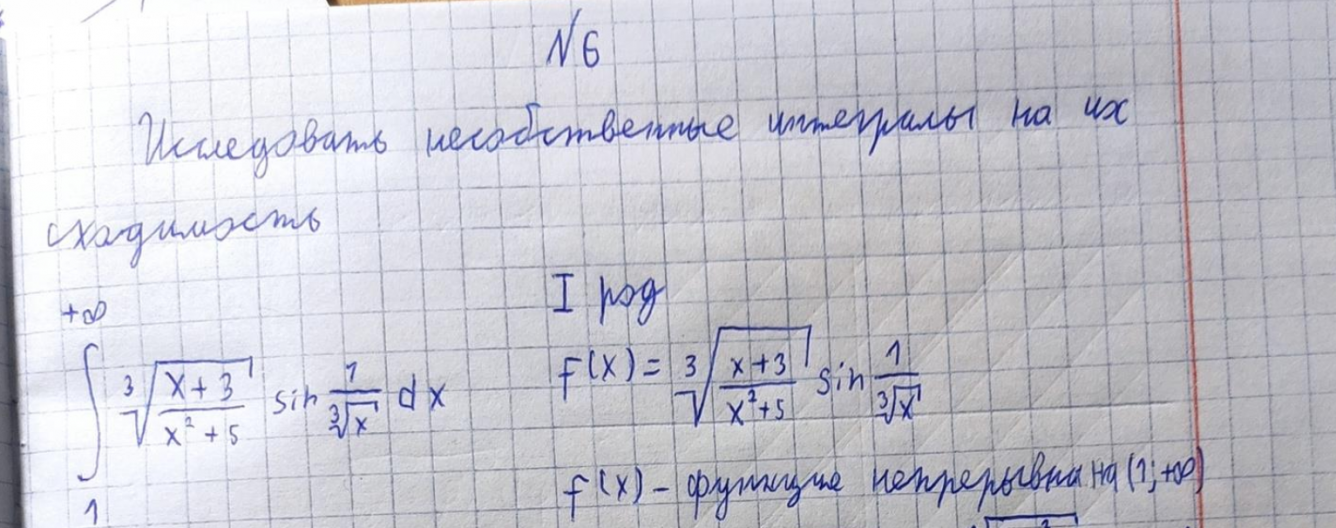 N 6
Исследовать несобственные интегралы на их
сходимость
I род
+∞
∫ ∛((x+3)/(x²+5)) sin 1/∛x dx
1
f(x) = ∛((x+3)/(x²+5)) sin 1/∛x
f(x) – функция непрерывна на (1; +∞)